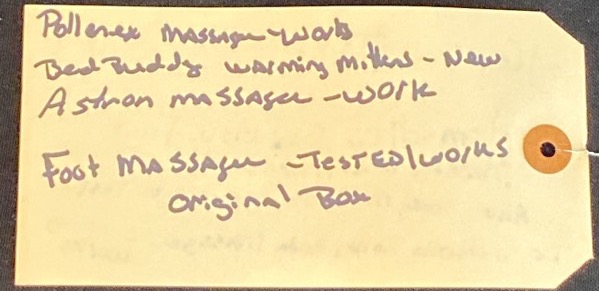 Pollenex Massager-Works
Bed Buddy warming Mittens - New
Astron MASSAger -WORK
Foot MASSAger -TESTED/WORKS
Original Box